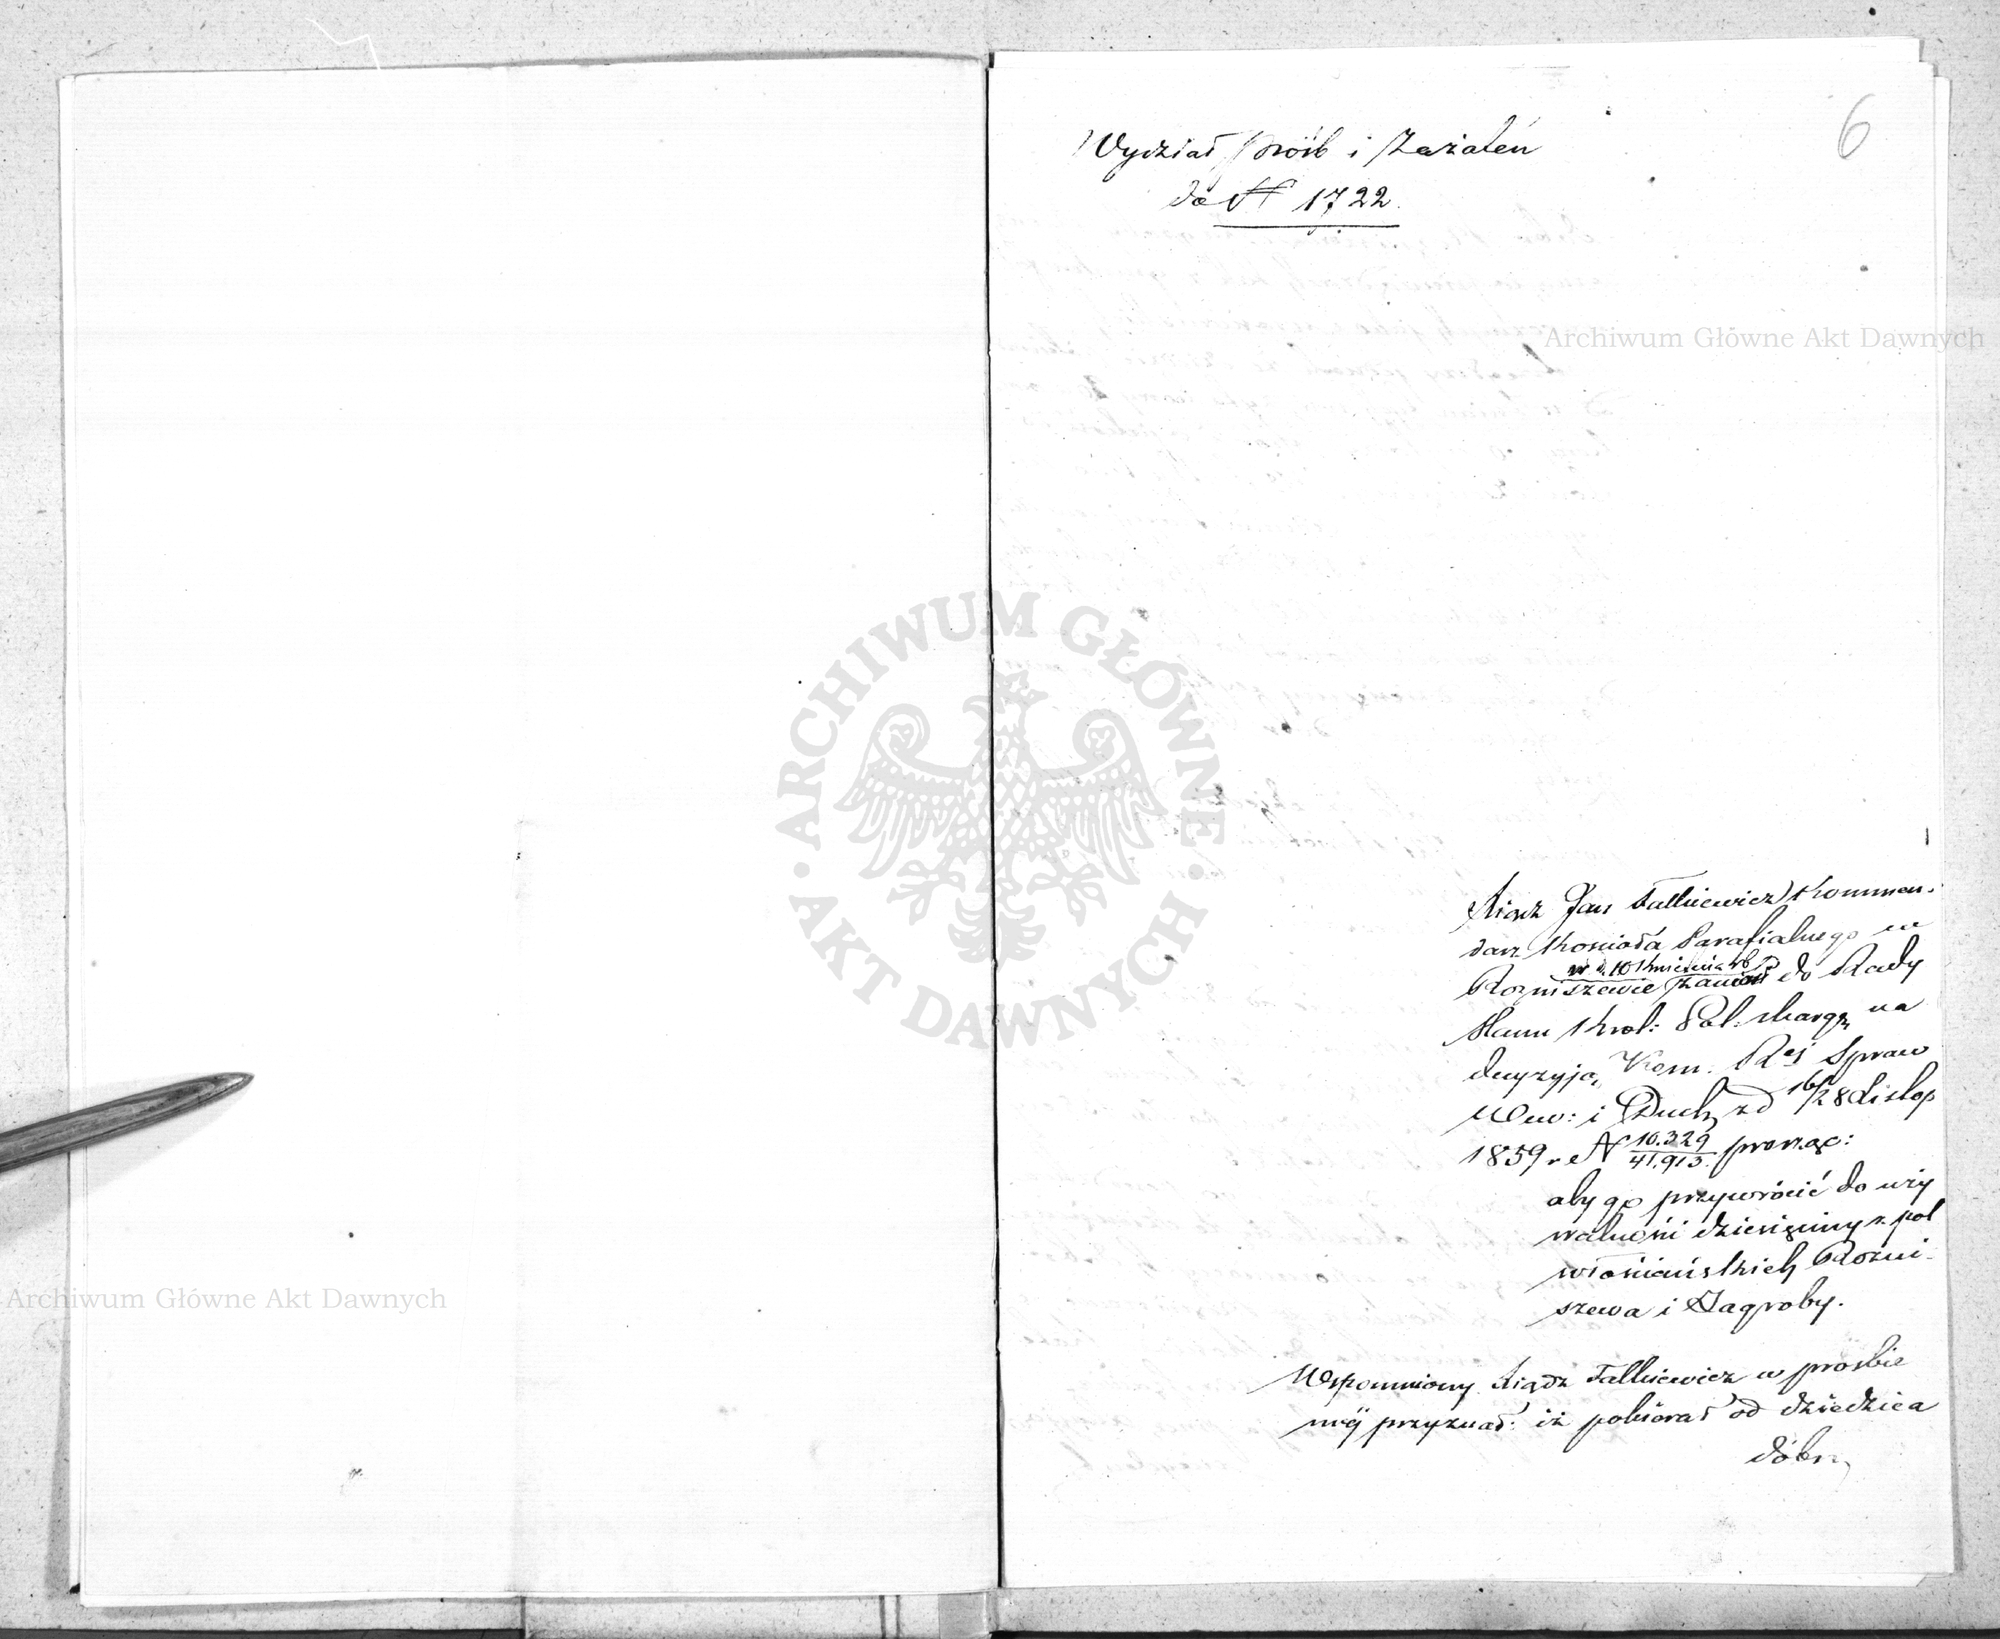 6
Wydział Próśb i Zażaleń
do N 1722.
Xiądz Jan Falkiewicz Kommen-
darz Kościoła Parafialnego w
w d. 10 Kwietnia rb
Rozniszewie zaniósł do Rady
Stanu Król: Pol: skargę na
decyzyją Kom. Rej Spraw
Wew: i Duch, z d 16/28 Listop
1859 r N 10.329/41.913. prosząc:
aby go przywrócić do uży
walności dziesięciny z pól
włościańskich Rozni-
szewa i Zagroby.
Wspomniony Xiądz Falkiewicz w prośbie
swéj przyznał: iż pobierał od dziedzica
dóbr,
Archiwum Główne Akt Dawnych
Archiwum Główne Akt Dawnych
ARCHIWUM GŁÓWNE
AKT DAWNYCH